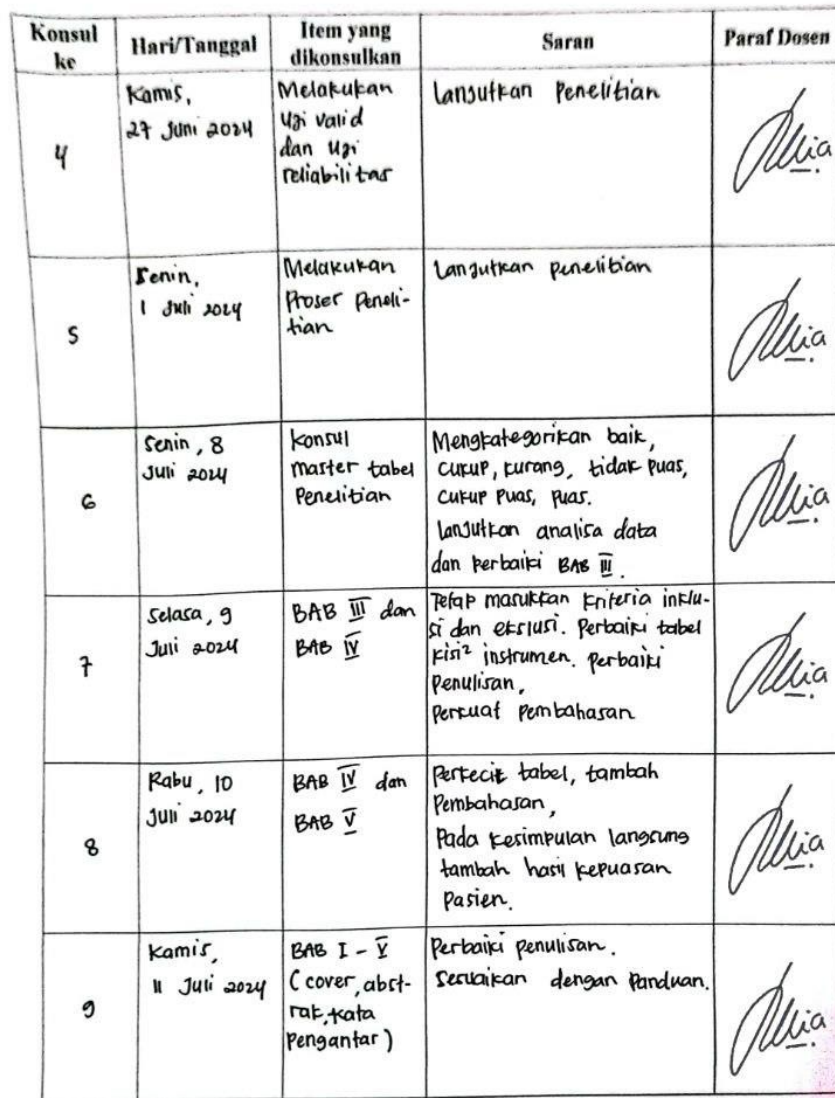 Konsul ke
Hari/Tanggal
Item yang dikonsulkan
Saran
Paraf Dosen
4
Kamis,
27 Juni 2024
Melakukan
Uji valid
dan Uji
reliabilitas
Lanjutkan Penelitian
5
Senin,
1 Juli 2024
Melakukan
Proses Peneli-
tian
Lanjutkan penelitian
6
Senin, 8
Juli 2024
Konsul
master tabel
Penelitian
Mengkategorikan baik,
cukup, kurang, tidak puas,
cukup puas, puas.
Lanjutkan analisa data
dan perbaiki BAB III.
7
Selasa, 9
Juli 2024
BAB III dan
BAB IV
Tetap masukkan kriteria inklu-
si dan ekslusi. Perbaiki tabel
kisi² instrumen. perbaiki
Penulisan,
Perkuat pembahasan
8
Rabu, 10
Juli 2024
BAB IV dan
BAB V
Perkecil tabel, tambah
Pembahasan,
Pada kesimpulan langsung
tambah hasil kepuasan
Pasien.
9
Kamis,
11 Juli 2024
BAB I - V
(cover, abst-
rak, kata
pengantar)
Perbaiki penulisan.
Sesuaikan dengan Panduan.